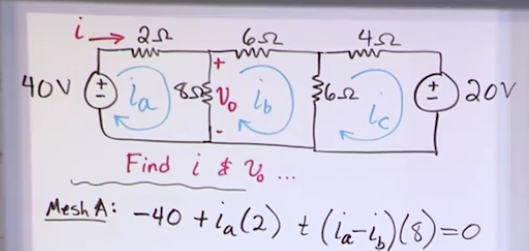 i → 2Ω 6Ω 4Ω
40V + - ia 8Ω + V₀ - ib 6Ω ic + - 20V
Find i & V₀ ...
Mesh A: -40 + ia(2) + (ia-ib)(8)=0